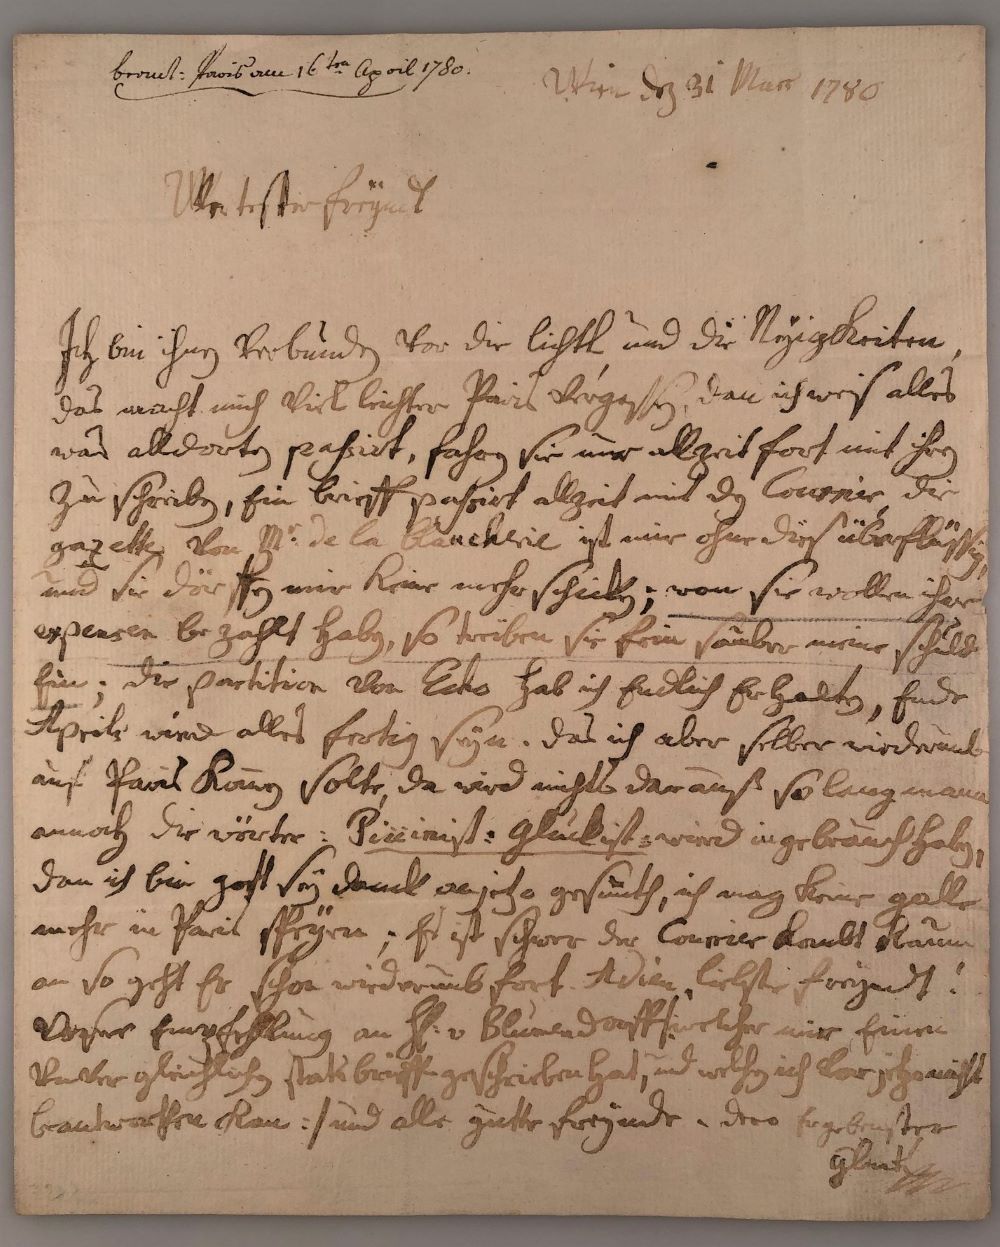 beant: Paris am 16ten April 1780.
Wien den 31 Mars 1780
Wertester freÿndt
Ich bin ihnen Verbunden Vor die lichtl und die Neÿigkeiten,
das macht mich Viel leichter Paris Vergessen, dan ich weis alles
was alldorten passirt, fahren sie nur allzeit fort mit ihren
zu schreiben, Ein brieff passirt allzeit mit den Courrier, die
gazetten Von Mr. de la blancherie ist mir ohne dies überflüssig,
und sie dörffen mir keine mehr schicken; wan sie wollen ihre
expensen bezahlt haben, so treiben sie fein sauber meine schuld
Ein; die partition Von Echo hab ich Endlich Erhalten, Ende
Aprils wird alles fertig seÿn. das ich aber selber wiederumb
auf Paris komen solte, da wird nichts daraus, so lang mann
annoch die wörter: Piccinist: Gluckist: wird in gebrauch haben,
dan ich bin gott seÿ danck anjetzo gesundt, ich mag keine galle
mehr in Paris speÿen; Es ist schwer der Courrier kombt kaum
an so geht Er schon wiederumb fort. Adieu, liebster freÿndt!
Unsere Empfehlung an H: v Blumendorff /:welcher mir Einen
Unvergleichlichen stats brieff geschrieben hat, und welchen ich Vor jetzo nicht
beantworten kan :/ und alle gutte freÿnde. dero Ergebenster
Gluck